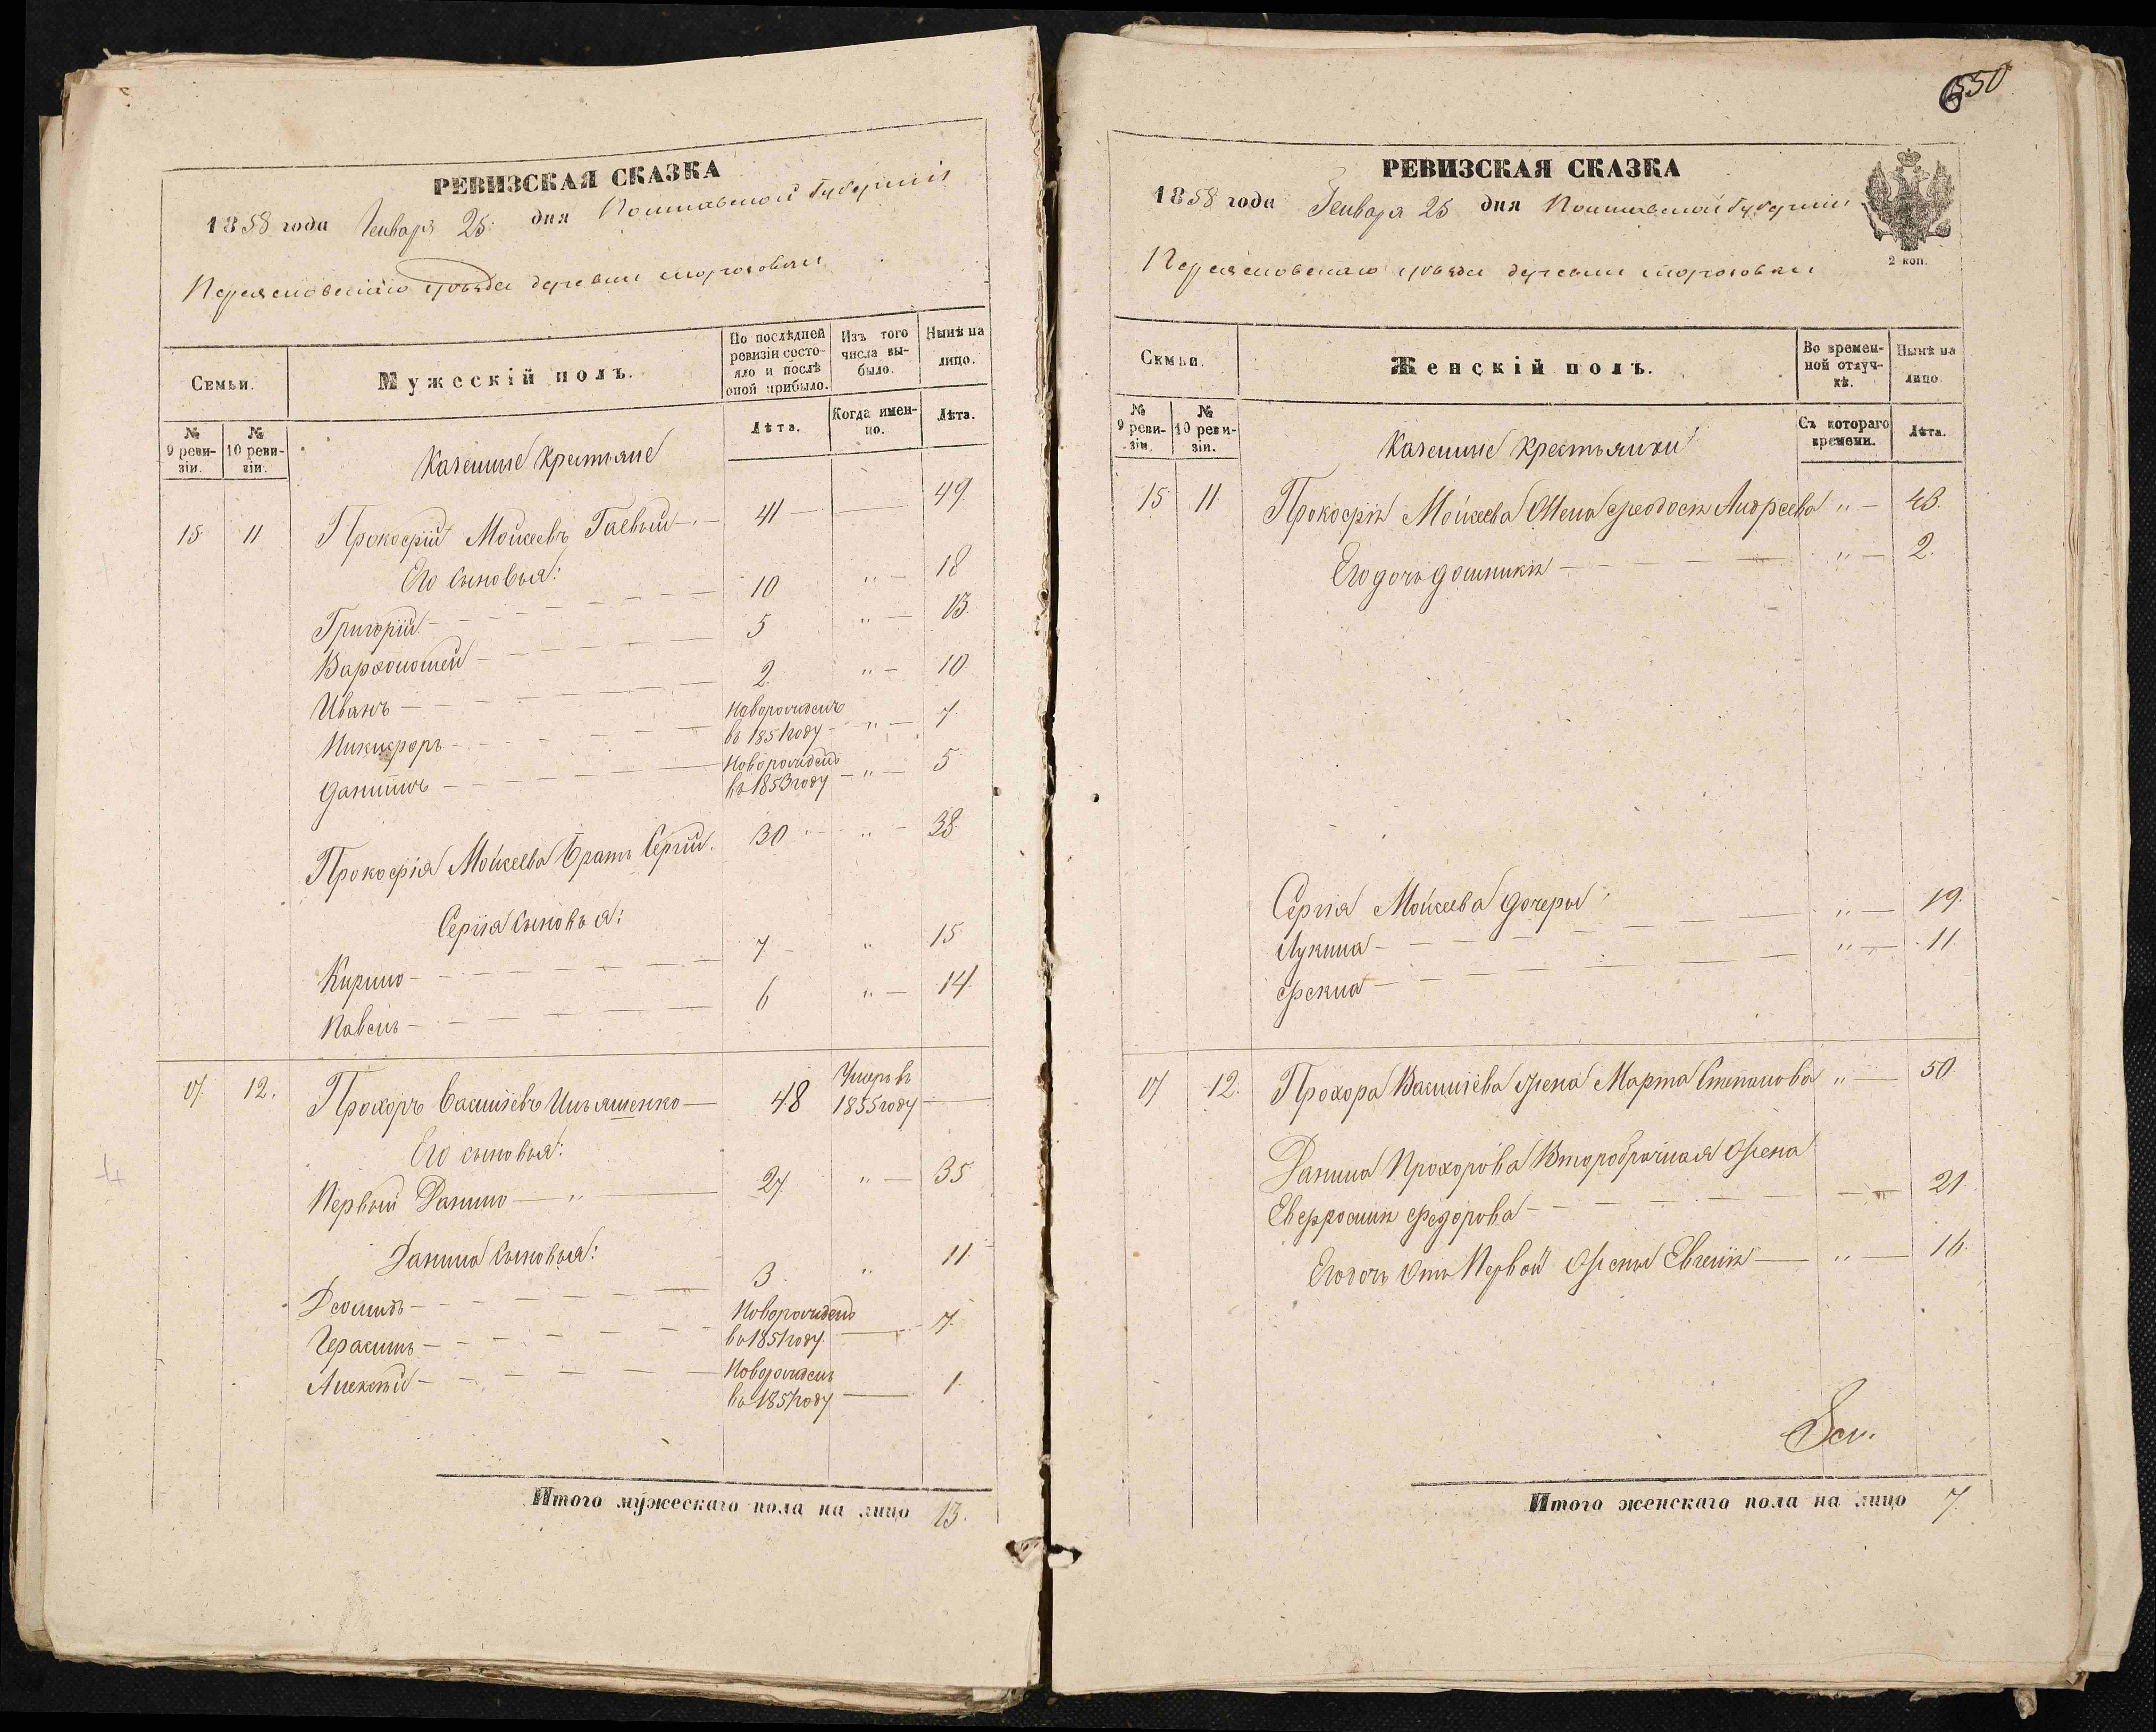 РЕВИЗСКАЯ СКАЗКА
1858 года Генваря 25 дня Полтавской Губерніи
Переясловскаго уѣзда деревни
Семьи.
Мужескій полъ.
По послѣдней ревизіи состояло и послѣ оной прибыло.
Изъ того числа выбыло.
Нынѣ на лицо.
№ 9 ревизіи.
№ 10 ревизіи.
Лѣта.
Когда именно.
Лѣта.
Казенние крестьяне
15 11 Прокофій Мойсеевъ Гаевый 41 — 49
Его сыновья:
Григорій 10 „ 18
Варфоломей 5 „ 13.
Иванъ 2. „ 10
Никифоръ Новорожденъ въ 1851 году „ 7
Даниилъ Новорожденъ въ 1853 году „ 5
Прокофія Мойсеева братъ Сергій. 30 „ 38
Сергія сыновья:
Кирило 7 „ 15
Павелъ 6 „ 14
17 12. Прохоръ Василіевъ Ильяшенко 48 Умеръ въ 1855 году —
Его сыновья:
Первый Данило 27 „ 35
Данила сыновья:
3 „ 11
Герасимъ Новорожденъ въ 1851 году — 7
Алексѣй Новорожденъ въ 1857 году — 1
Итого мужескаго пола на лицо 13.
550
РЕВИЗСКАЯ СКАЗКА
1858 года Генваря 25 дня Полтавской Губерніи
2 коп.
Переясловскаго уѣзда деревни
Семьи.
Женскій полъ.
Во временной отлучкѣ.
Нынѣ на лицо
№ 9 ревизіи.
№ 10 ревизіи.
Съ котораго времени.
Лѣта.
Казенние крестьянки
15 11 Прокофія Мойсеева Жена Феодосія Андреева „ 43.
Его дочь Домникія „ 2.
Сергія Мойсеева дочеры
Лукина „ 19.
Фекла „ 11
17 12. Прохора Василіева жена Марта Степанова „ 50
Данила Прохорова Второбрачная жена
Евфросинія Федорова 21
Его дочь отъ Первой жены Евгенія „ 16.
Итого женскаго пола на лицо 7.